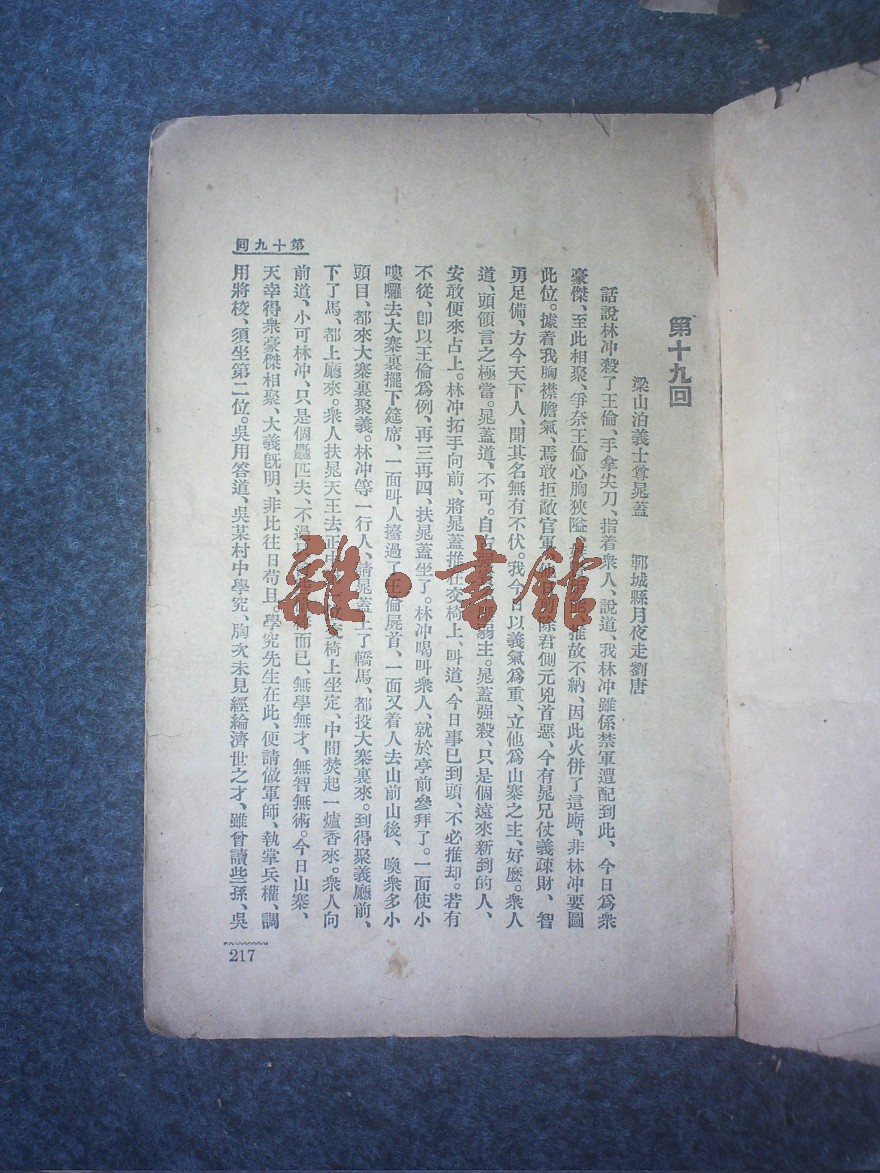 第十九回
梁山泊義士尊晁蓋 鄆城縣月夜走劉唐
話說林冲殺了王倫、手拿尖刀、指着衆人、說道、我林冲雖係禁軍遭配到此、今日爲衆
豪傑、至此相聚、爭奈王倫心胸狹隘、推故不納、因此火併了這廝、非林冲要圖
此位。據着我胸襟膽氣、焉敢拒敵官軍、除君側元兇首惡、今有晁兄仗義疎財、智
勇足備、方今天下人、聞其名無有不伏。我今日以義氣爲重、立他爲山寨之主、好麽。衆人
道、頭領言之極當。晁蓋道、不可。自古弱主。晁蓋强殺、只是個遠來新到的人、
安敢便來占上。林冲拓手向前、將晁蓋推在交椅上、叫道、今日事已到頭、不必推却。若有
不從、卽以王倫爲例、再三再四、扶晁蓋坐了。林冲喝叫衆人、就於亭前參拜了。一面使小
嘍囉去大寨裏擺下筵席、一面叫人擡過了王倫屍首、一面又着人去山前山後、喚衆多小
頭目、都來大寨裏聚義。林冲等一行人、請晁蓋上了轎馬、都投大寨裏來。到得聚義廳前、
下了馬、都上廳來。衆人扶晁天王去、正中椅上坐定、中間焚起一爐香來。衆人向
前道、小可林冲、只是個麤匹夫、不過而已、無學無才、無智無術。今日山寨、
天幸得衆豪傑相聚、大義旣明、非比往日苟且。學究先生在此、便請做軍師、執掌兵權、調
用將校、須坐第二位。吳用答道、吳某村中學究、胸次未見經綸濟世之才、雖曾讀些孫、吳
第十九回
217
雜·書館